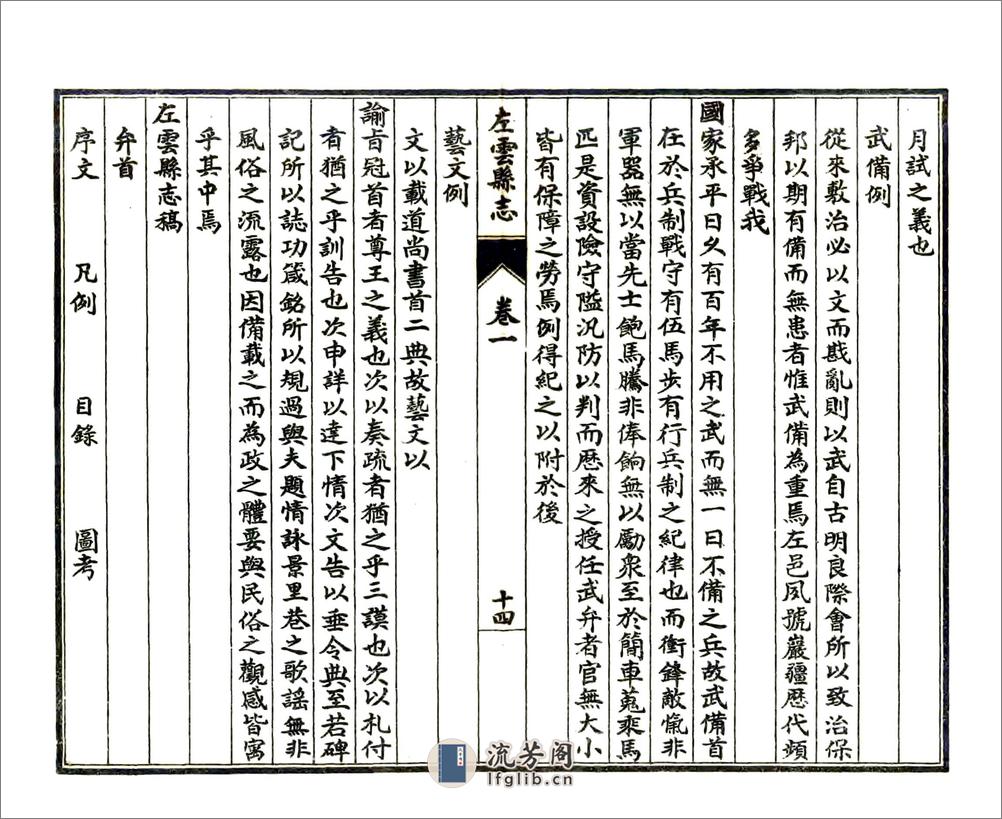 月試之義也
武備例
從來敷治必以文而戡亂則以武自古明良際會所以致治保
邦以期有備而無患者惟武備為重焉左邑夙號嚴疆歷代頻
多爭戰我
國家承平日久有百年不用之武而無一日不備之兵故武備首
在於兵制戰守有伍馬步有行兵制之紀律也而衝鋒敵愾非
軍器無以當先士飽馬騰非俸餉無以勵衆至於簡車蒐乘馬
匹是資設險守隘汛防以判而歷來之授任武弁者官無大小
皆有保障之勞焉例得紀之以附於後
左雲縣志 卷一 十四
藝文例
文以載道尚書首二典故藝文以
諭旨冠首者尊王之義也次以奏疏者猶之乎三謨也次以札付
者猶之乎訓告也次申詳以達下情次文告以垂令典至若碑
記所以誌功箴銘所以規過與夫題情詠景里巷之歌謠無非
風俗之流露也因備載之而為政之體要與民俗之觀感皆寓
乎其中焉
左雲縣志稿
弁首
序文 凡例 目錄 圖考
流芳阁
lfglib.cn